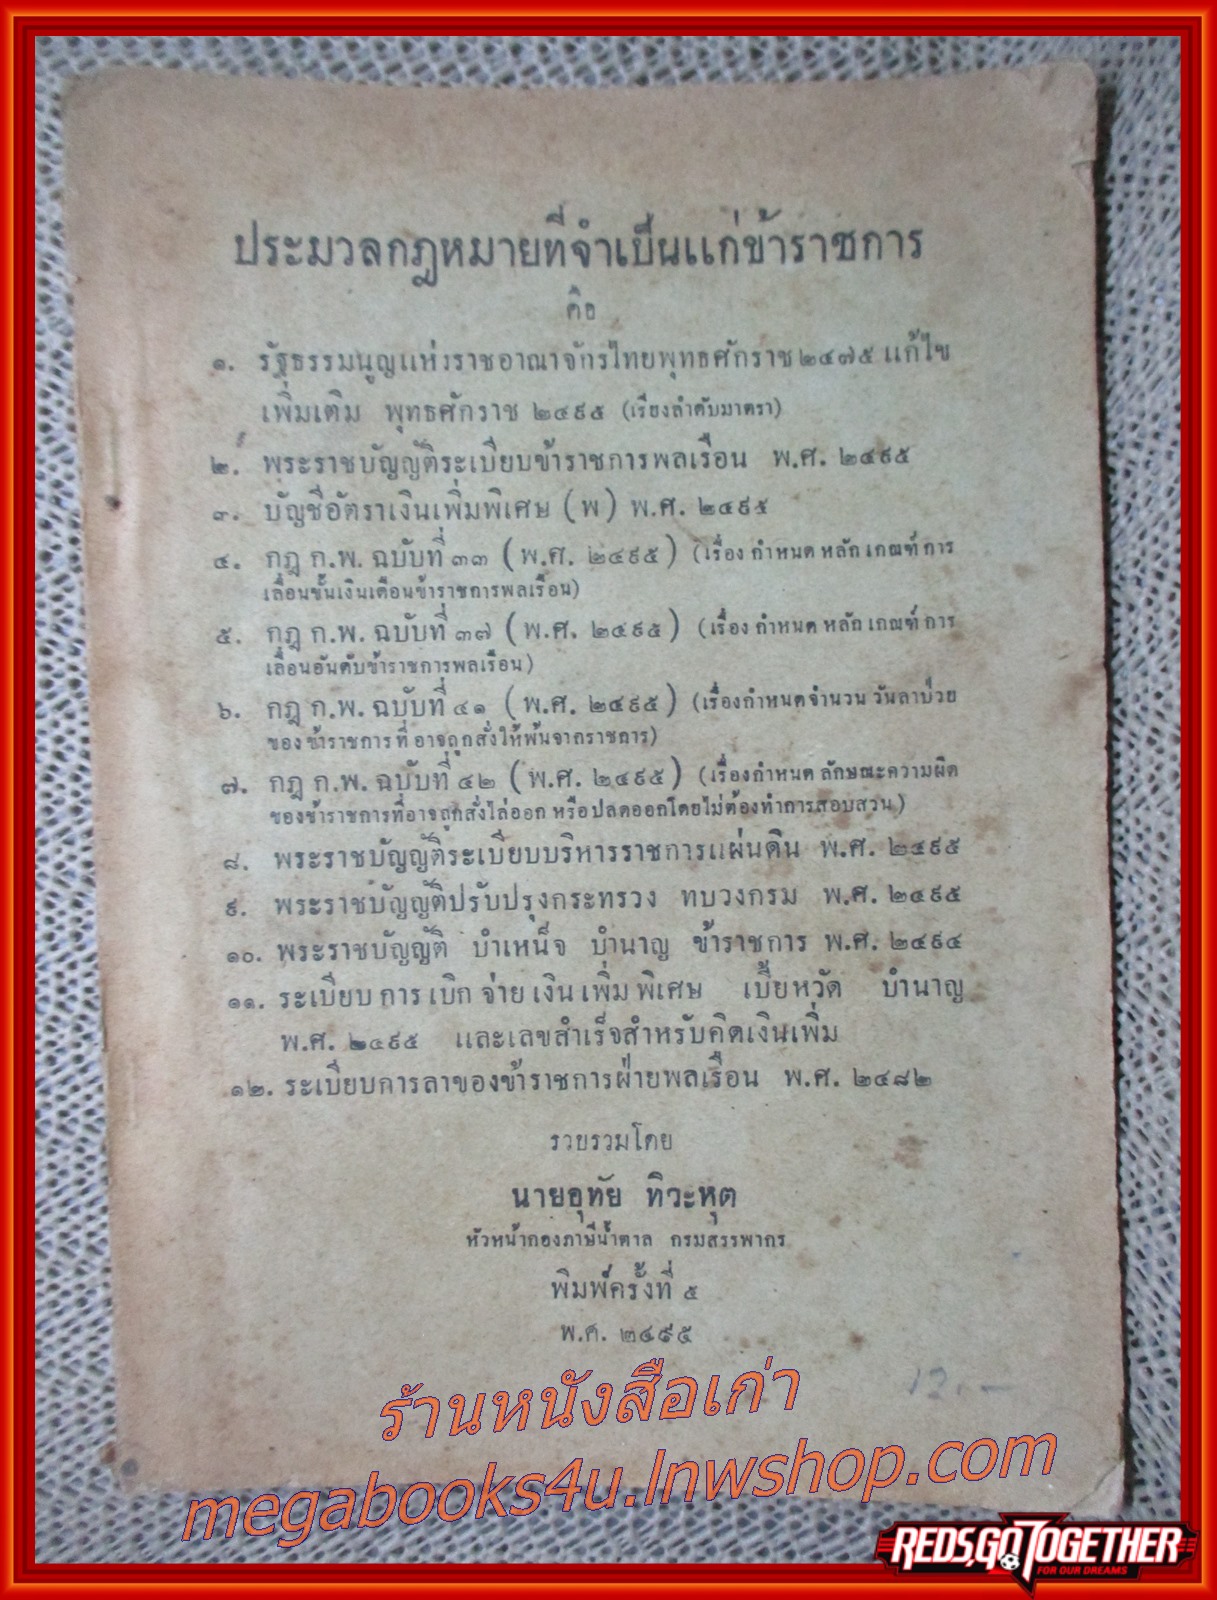 ประมวลกฎหมายที่จำเป็นแก่ข้าราชการ
คือ
๑. รัฐธรรมนูญแห่งราชอาณาจักรไทยพุทธศักราช ๒๔๗๕ แก้ไข
เพิ่มเติม พุทธศักราช ๒๔๙๕ (เรียงลำดับมาตรา)
๒. พระราชบัญญัติระเบียบข้าราชการพลเรือน พ.ศ. ๒๔๙๕
๓. บัญชีอัตราเงินเพิ่มพิเศษ (พ) พ.ศ. ๒๔๙๕
๔. กฎ ก.พ. ฉบับที่ ๓๓ (พ.ศ. ๒๔๙๕) (เรื่อง กำหนด หลัก เกณฑ์ การ
เลื่อนขั้นเงินเดือนข้าราชการพลเรือน)
๕. กฎ ก.พ. ฉบับที่ ๓๗ (พ.ศ. ๒๔๙๕) (เรื่อง กำหนด หลัก เกณฑ์ การ
เลื่อนอันดับข้าราชการพลเรือน)
๖. กฎ ก.พ. ฉบับที่ ๔๑ (พ.ศ. ๒๔๙๕) (เรื่องกำหนดจำนวน วันลาป่วย
ของ ข้าราชการ ที่ อาจถูกสั่งให้พ้นจากราชการ)
๗. กฎ ก.พ. ฉบับที่ ๔๒ (พ.ศ. ๒๔๙๕) (เรื่องกำหนด ลักษณะความผิด
ของข้าราชการที่อาจถูกสั่งไล่ออก หรือปลดออกโดยไม่ต้องทำการสอบสวน)
๘. พระราชบัญญัติระเบียบบริหารราชการแผ่นดิน พ.ศ. ๒๔๙๕
๙. พระราชบัญญัติปรับปรุงกระทรวง ทบวงกรม พ.ศ. ๒๔๙๕
๑๐. พระราชบัญญัติ บำเหน็จ บำนาญ ข้าราชการ พ.ศ. ๒๔๙๔
๑๑. ระเบียบ การ เบิก จ่าย เงิน เพิ่ม พิเศษ เบี้ยหวัด บำนาญ
พ.ศ. ๒๔๙๕ และเลขสำเร็จสำหรับคิดเงินเพิ่ม
๑๒. ระเบียบการลาของข้าราชการฝ่ายพลเรือน พ.ศ. ๒๔๘๒
รวบรวมโดย
นายอุทัย ทิวะหุต
หัวหน้ากองภาษีน้ำตาล กรมสรรพากร
พิมพ์ครั้งที่ ๕
พ.ศ. ๒๔๙๕
12.-
ร้านหนังสือเก่า
megabooks4u.lnwshop.com
REDS,GO TOGETHER
FOR OUR DREAMS